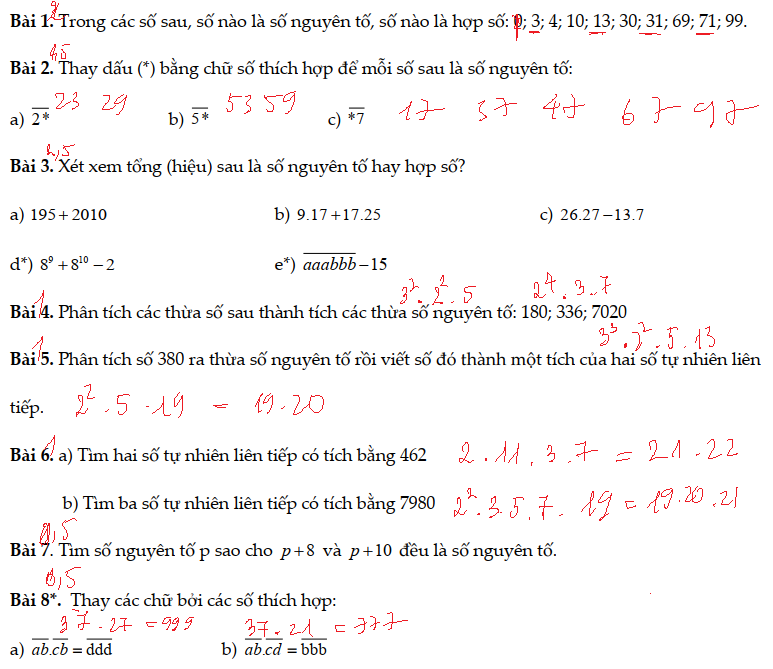 Bài 1. Trong các số sau, số nào là số nguyên tố, số nào là hợp số: 0; 3; 4; 10; 13; 30; 31; 69; 71; 99.
1,5
Bài 2. Thay dấu (*) bằng chữ số thích hợp để mỗi số sau là số nguyên tố:
a) 2* 23 29 b) 5* 53 59 c) *7 17 37 47 67 97
2,5
Bài 3. Xét xem tổng (hiệu) sau là số nguyên tố hay hợp số?
a) 195 + 2010 b) 9.17 + 17.25 c) 26.27 − 13.7
d*) 8⁹ + 8¹⁰ − 2 e*) aaabbb − 15
3². 2². 5 2⁴. 3. 7
1
Bài 4. Phân tích các thừa số sau thành tích các thừa số nguyên tố: 180; 336; 7020
3³. 2². 5. 13
1
Bài 5. Phân tích số 380 ra thừa số nguyên tố rồi viết số đó thành một tích của hai số tự nhiên liên
tiếp. 2². 5. 19 = 19. 20
1
Bài 6. a) Tìm hai số tự nhiên liên tiếp có tích bằng 462 2. 11. 3. 7 = 21. 22
b) Tìm ba số tự nhiên liên tiếp có tích bằng 7980 2². 3. 5. 7. 19 = 19. 20. 21
0,5
Bài 7. Tìm số nguyên tố p sao cho p + 8 và p + 10 đều là số nguyên tố.
0,5
Bài 8*. Thay các chữ bởi các số thích hợp:
37. 27 = 999 37. 21 = 777
a) ab.cb = ddd b) ab.cd = bbb